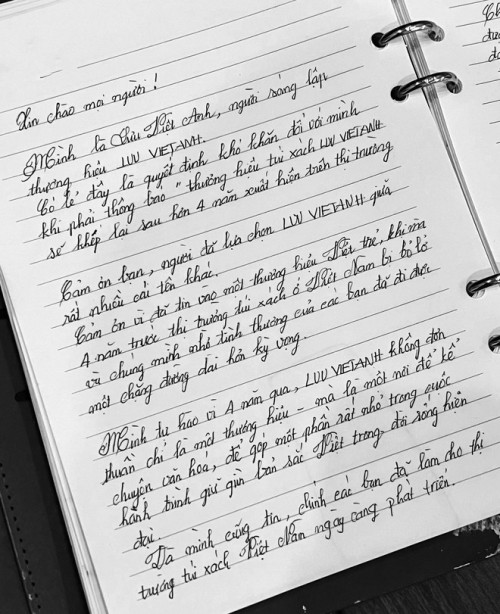 Xin chào mọi người!
Mình là Lưu Việt Anh, người sáng lập
thương hiệu LUU VIETANH.
Có lẽ, đây là quyết định khó khăn đối với mình
khi phải thông báo "thương hiệu túi xách LUU VIETANH
sẽ khép lại sau hơn 4 năm xuất hiện trên thị trường
Cảm ơn bạn, người đã lựa chọn LUU VIETANH giữa
rất nhiều cái tên khác.
Cảm ơn vì đã tin vào một thương hiệu Việt trẻ, khi mà
4 năm trước thị trường túi xách ở Việt Nam bị bỏ lỡ
và chúng mình nhờ tình thương của các bạn đã đi được
một chặng đường dài hơn kỳ vọng.
Mình tự hào vì 4 năm qua, LUU VIETANH không đơn
thuần chỉ là một thương hiệu - mà là một nơi để kể
chuyện văn hoá, để góp một phần rất nhỏ trong cuộc
hành trình giữ gìn bản sắc Việt trong đời sống hiện
đại.
Và mình cũng tin, chính các bạn đã làm cho thị
trường túi xách Việt Nam ngày càng phát triển.